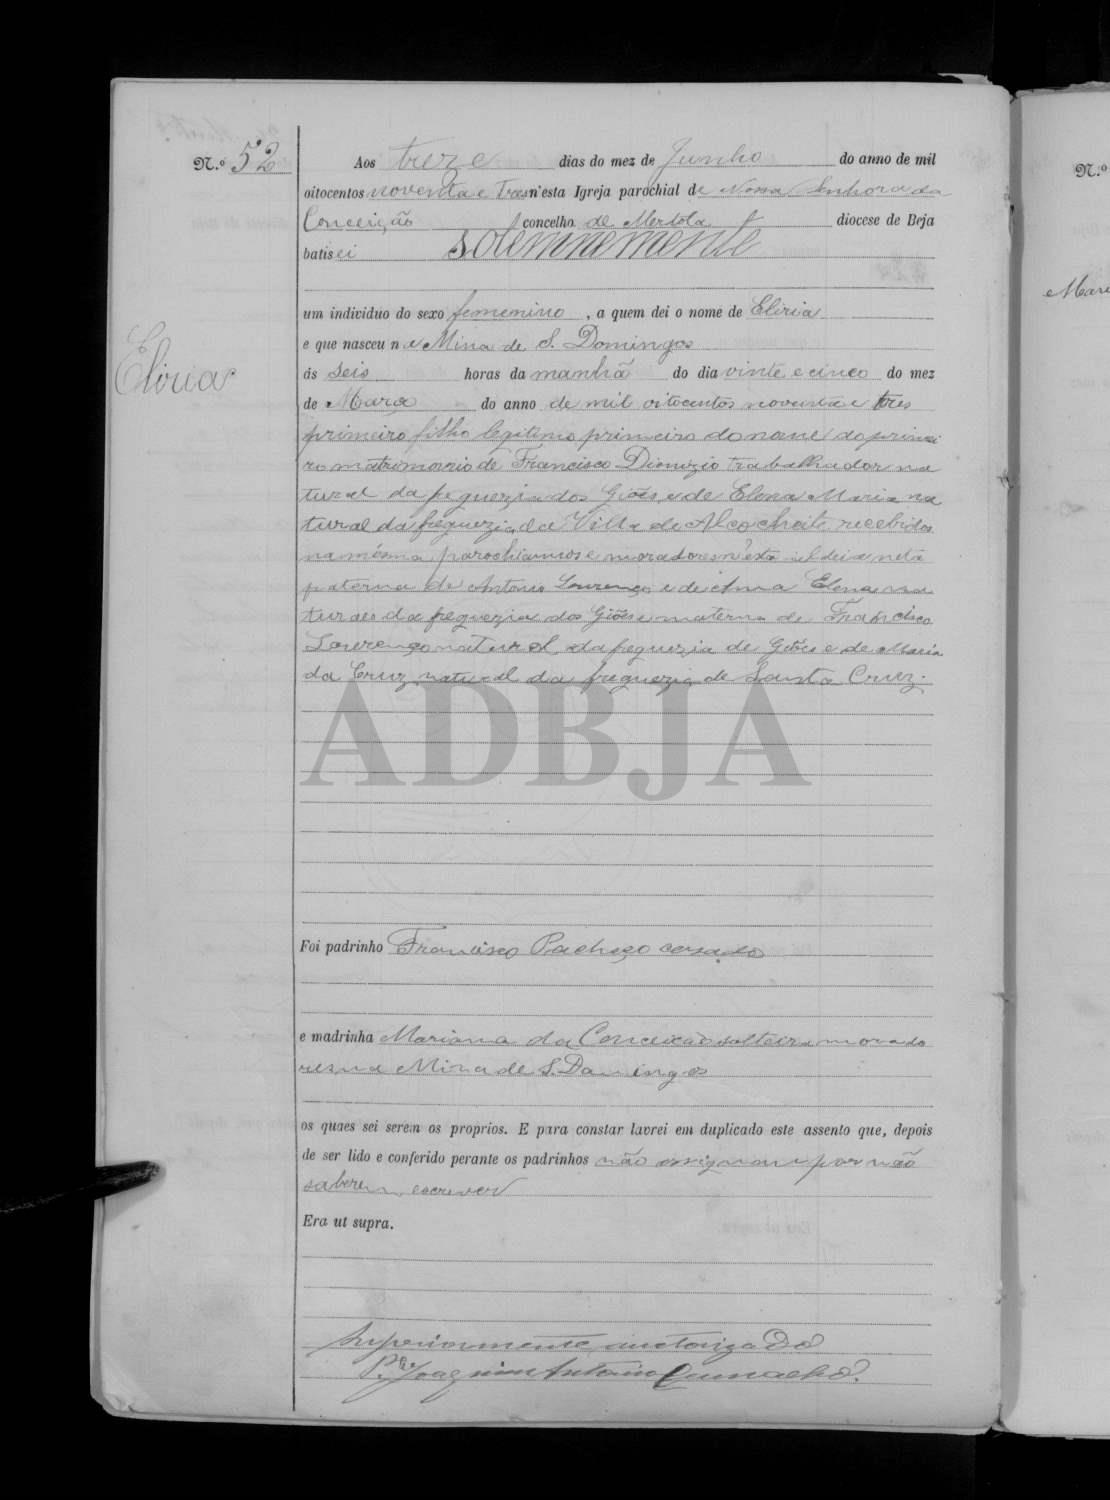 N.º 52
Aos treze dias do mez de Junho do anno de mil
oitocentos noventa e tres n'esta Igreja parochial de Nossa Senhora da
Conceição concelho de Mertola diocese de Beja
batisei solemnemente
um individuo do sexo femenino, a quem dei o nome de Eliria
e que nasceu na Mina de S. Domingos
Eliria
ás seis horas da manhã do dia vinte e cinco do mez
de Março do anno de mil oitocentos noventa e tres
primeiro filho legitimo primeiro do nome do primei
ro matrimonio de Francisco Dionizio trabalhador na
tural da freguezia dos Giões e de Elena Maria na
tural da freguezia da Villa de Alcochete recebidos
na mesma parochianos e moradores n'esta aldeia neta
paterna de Antonio Lourenço e de Anna Elena na
turaes da freguezia dos Giões e materna de Francisco
Lourenço natural da freguezia de Giões e de Maria
da Cruz natural da freguezia de Santa Cruz.
ADBJA
Foi padrinho Francisco Pacheço casado
e madrinha Marianna da Conceição solteira morado
res na Mina de S. Domingos
os quaes sei serem os proprios. E para constar lavrei em duplicado este assento que, depois
de ser lido e conferido perante os padrinhos não assignam por não
saberem escrever
Era ut supra.
Superiormente auctorizado
P.e Joaquim Antonio Camacho.
N.º
Mari